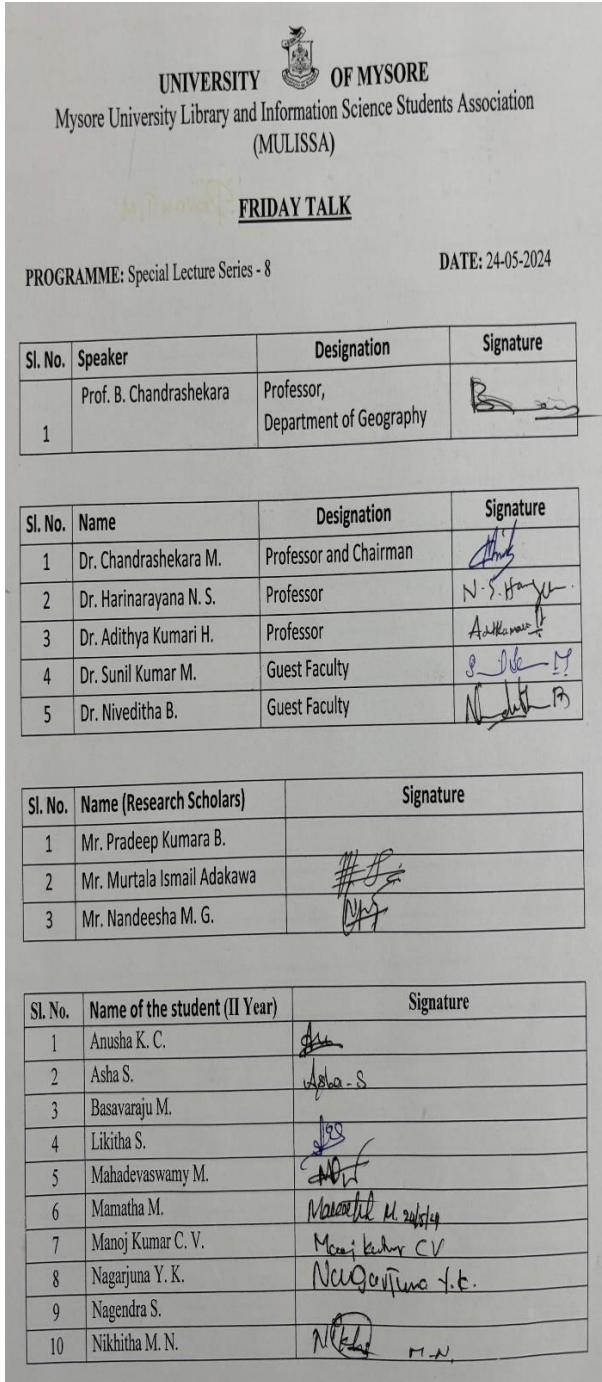 UNIVERSITY OF MYSORE
Mysore University Library and Information Science Students Association
(MULISSA)
FRIDAY TALK
PROGRAMME: Special Lecture Series - 8 DATE: 24-05-2024
Sl. No. Speaker Designation Signature
1 Prof. B. Chandrashekara Professor,
Department of Geography
Sl. No. Name Designation Signature
1 Dr. Chandrashekara M. Professor and Chairman
2 Dr. Harinarayana N. S. Professor N.S.
3 Dr. Adithya Kumari H. Professor
4 Dr. Sunil Kumar M. Guest Faculty
5 Dr. Niveditha B. Guest Faculty
Sl. No. Name (Research Scholars) Signature
1 Mr. Pradeep Kumara B.
2 Mr. Murtala Ismail Adakawa
3 Mr. Nandeesha M. G.
Sl. No. Name of the student (II Year) Signature
1 Anusha K. C.
2 Asha S. Asha-S
3 Basavaraju M.
4 Likitha S.
5 Mahadevaswamy M.
6 Mamatha M. M. 24/5/24
7 Manoj Kumar C. V. Manoj Kumar CV
8 Nagarjuna Y. K. Nagarjuna Y.K.
9 Nagendra S.
10 Nikhitha M. N. M.N.